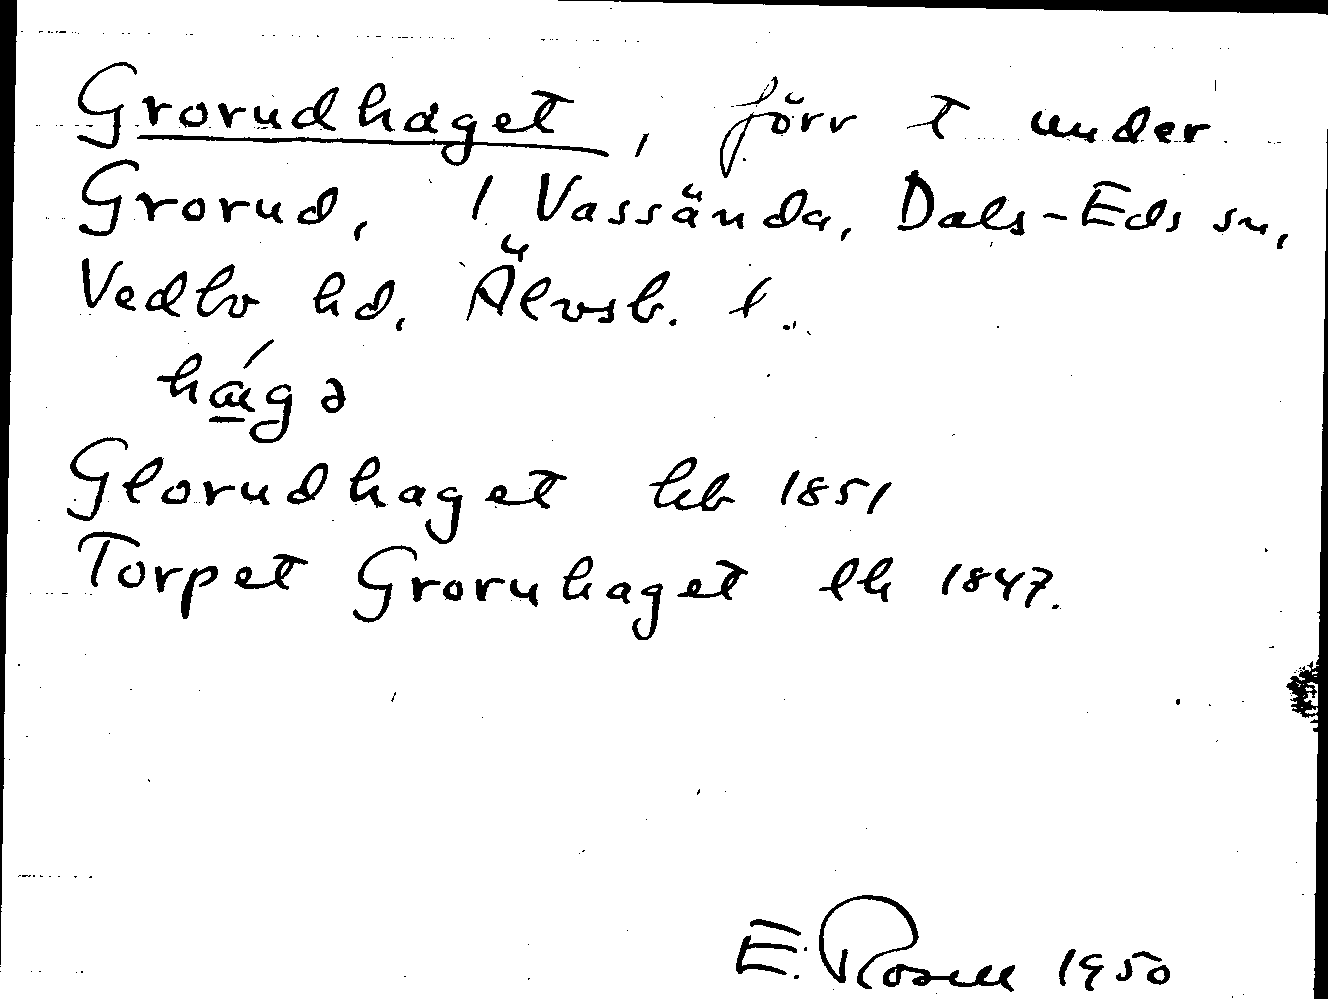 Grorudhaget, förr t under
Grorud, 1 Vassända, Dals-Eds sn,
Vedbo hd, Älvsb. l.
hág ə
Glorudhaget hb 1851
Torpet Groruhaget lh 1847.
E. Rosell 1950